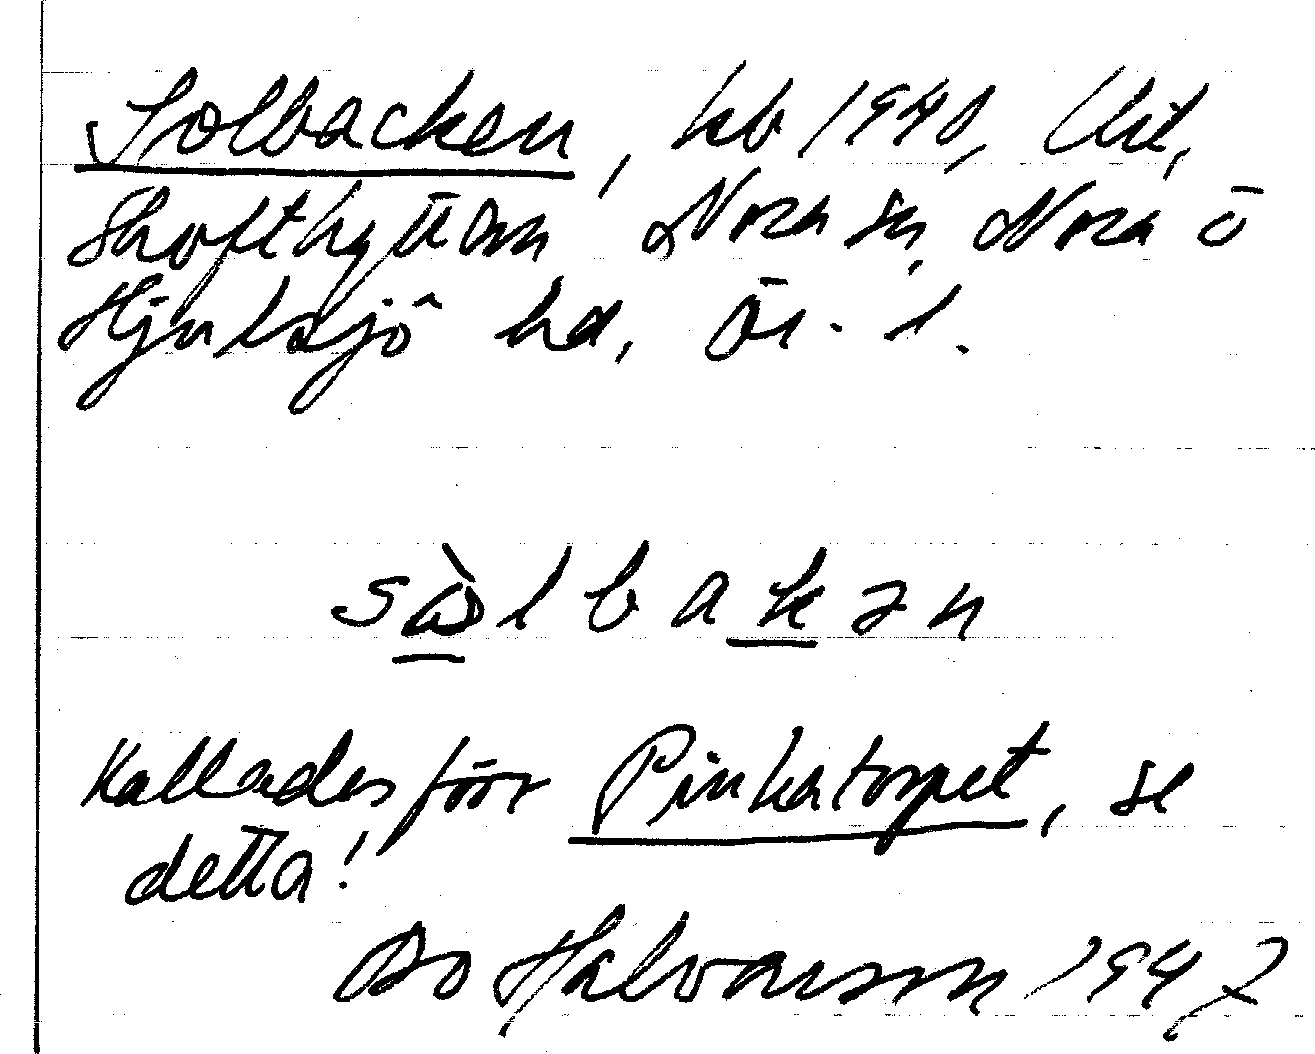 Solbacken, kb 1940, Lit,
Skofthyttan, Nora sn, Nora o
Hjulsjö hd, Ör. l.
sò̱lbaḵən
Kallades förr Pinkatorpet, se
detta!
Bo Halvarson 1947